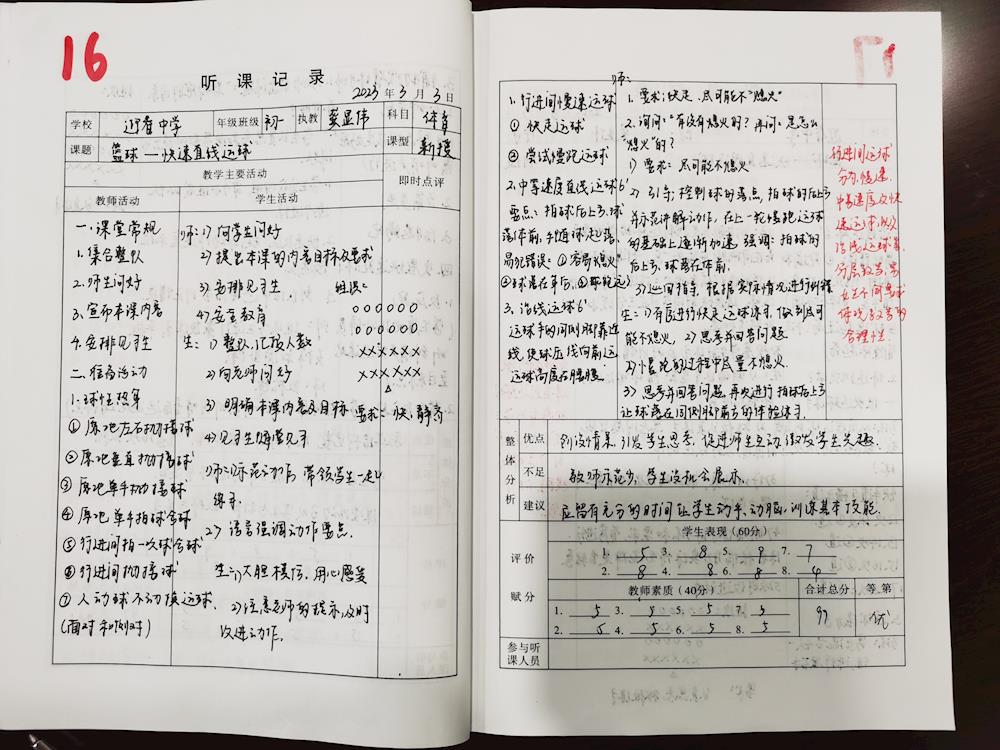 16
听课记录
2023年3月3日
学校 迎春中学 年级班级 初一 执教 窦显伟 科目 体育
课题 篮球—快速直线运球 课型 新授
教学主要活动 即时点评
教师活动 学生活动
一.课堂常规
1.集合整队
2.师生问好
3.宣布本课内容
4.安排见习生
二.准备活动
1.球性练习
①原地左右抛接球
②原地垂直抛接球
③原地单手抛接球
④原地单手拍球含球
⑤行进间拍一次球含球
⑥行进间抛接球
⑦人动球不动换运球
(面对和侧对)
师:1)向学生问好
2)提出本课的内容目标及要求
3)安排见习生. 组织:
4)安全教育
生:1)整队,汇报人数
2)向老师问好
3)明确本课内容及目标 要求:快,静,齐
4)见习生随堂见习
师:1)示范动作,带领学生一起
练习.
2)语言强调动作要点.
生:1)大胆模仿,用心感受
2)注意老师的提示,及时
改进动作.
1.行进间慢速运球
①快走运球
②尝试慢跑运球
2.中等速度直线运球6'
要点:拍球后上方,球
落体前,手随球起落.
易犯错误:①容易"熄火"
②球落在身后,
3.沿线运球6'
运球手的同侧脚靠近
线,使球压线向前运.
运球高度在腰腹.
师:
1.要求:快走,尽可能不"熄火"
2.询问:"有没有熄火的?再问:是怎么
"熄火"的?
1)要求:尽可能不熄火
2)引导:控制球的落点,拍球的后上方
并示范讲解动作,在上一轮慢跑运球
的基础上逐渐加速.强调:拍球的
后上方,球落在体前.
3)巡回指导,根据实际情况进行纠错
生:1)有序进行快走运球练习.做到尽可
能不熄火,2)思考并回答问题
2)慢跑的过程中尽量不熄火.
3)思考并回答问题,再次进行拍球后上方
让球落在同侧脚前方的体验练习.
行进间运球
分为慢速.
中等速度及快
速运球,以及
沿线运球等
分层教学,
体现了教学的
合理性.
整体分析
优点 创设情景,引发学生思考,促进师生互动,激发学生兴趣.
不足 教师示范少,学生没机会展示.
建议 应留有充分的时间让学生动手、动脑,训练基本技能.
评价赋分
学生表现(60分)
1. 5 3. 8 5. 9 7. 7
2. 8 4. 8 6. 8 8. 4
教师素质(40分) 合计总分 等第
1. 5 3. 5 5. 5 7. 5 97 优
2. 5 4. 5 6. 5 8. 5
参与听课人员